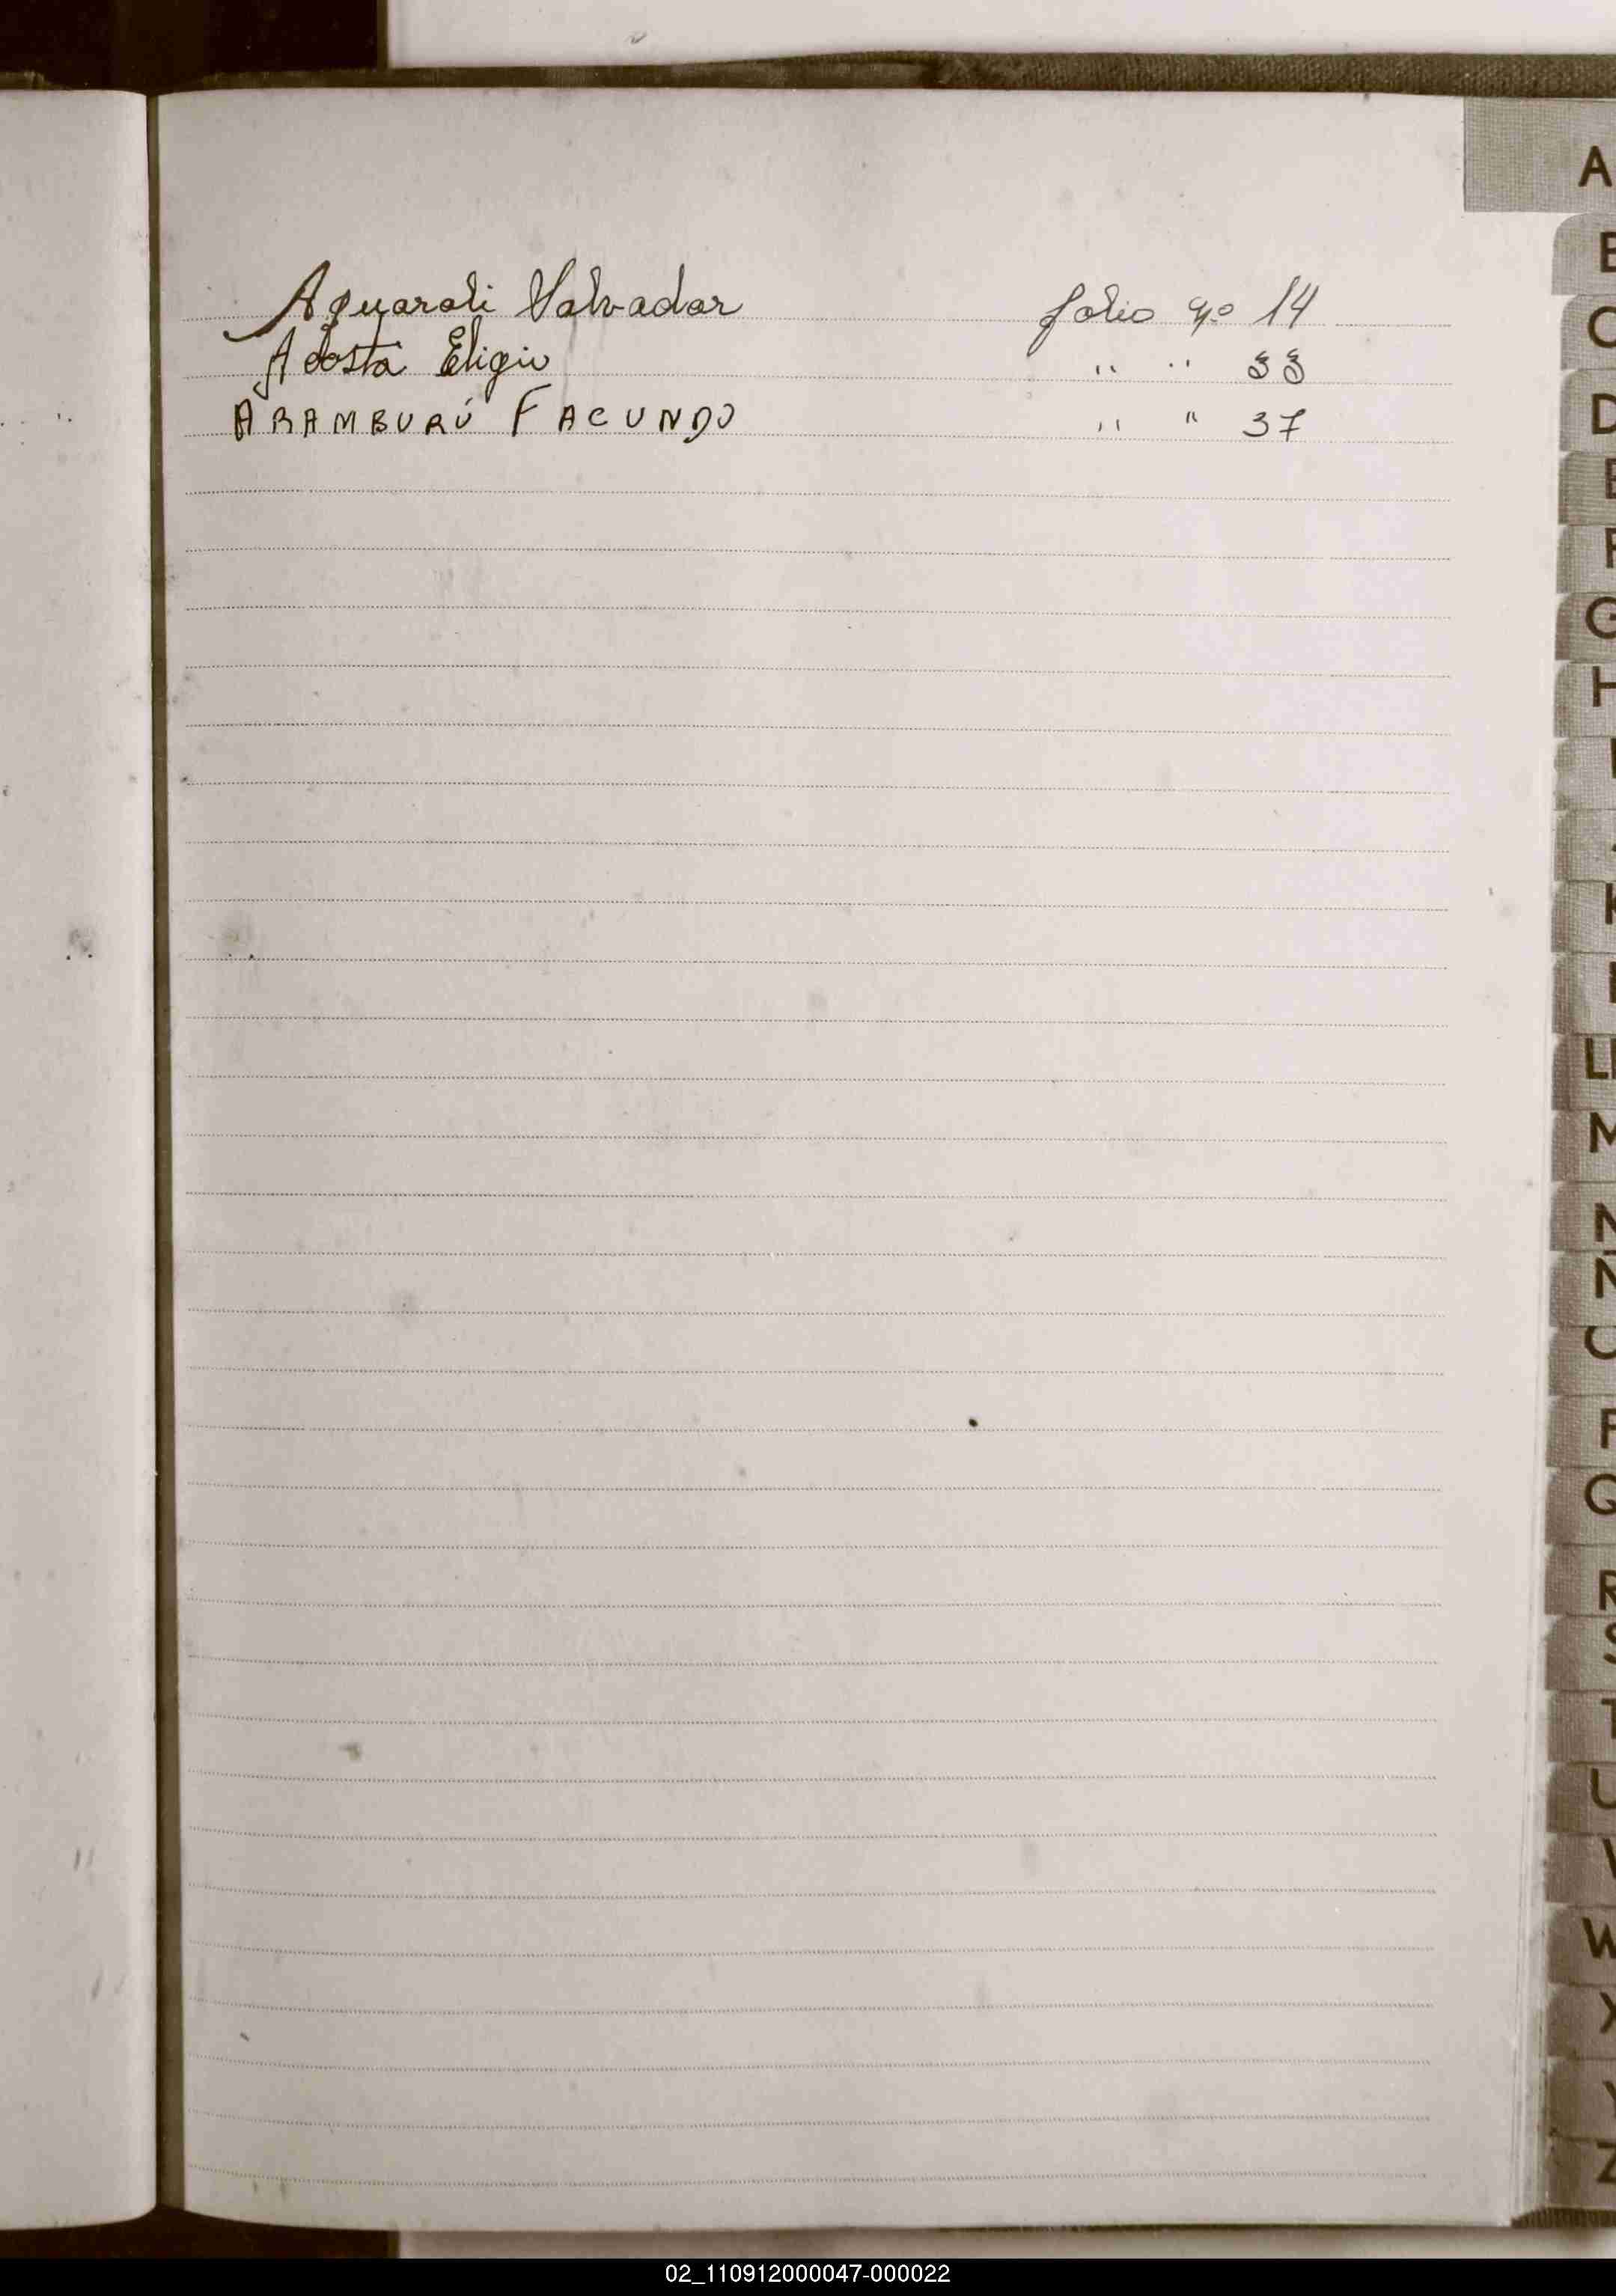 A
Aguaroli Salvador folio nº 14
Acosta Eligio " " 33
ARAMBURÚ FACUNDO " " 37
B
C
D
E
F
G
H
I
J
K
L
LL
M
N
Ñ
O
P
Q
R
S
T
U
V
W
X
Y
Z
02_110912000047-000022